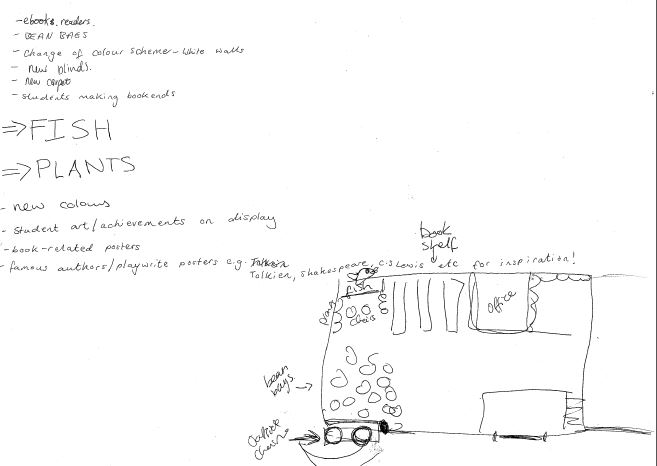 -ebooks. readers.
- BEAN BAGS
- Change of colour scheme - White walls
- new blinds.
- new carpet
- students making bookends
=> FISH
=> PLANTS
- new colours
- student art/achievements on display
- book-related posters
- famous authors/playwrite posters e.g.
Tolkien, Shakespeare, C.S Lewis etc for inspiration!
book
shelf
fish
chairs
office
bean
bags